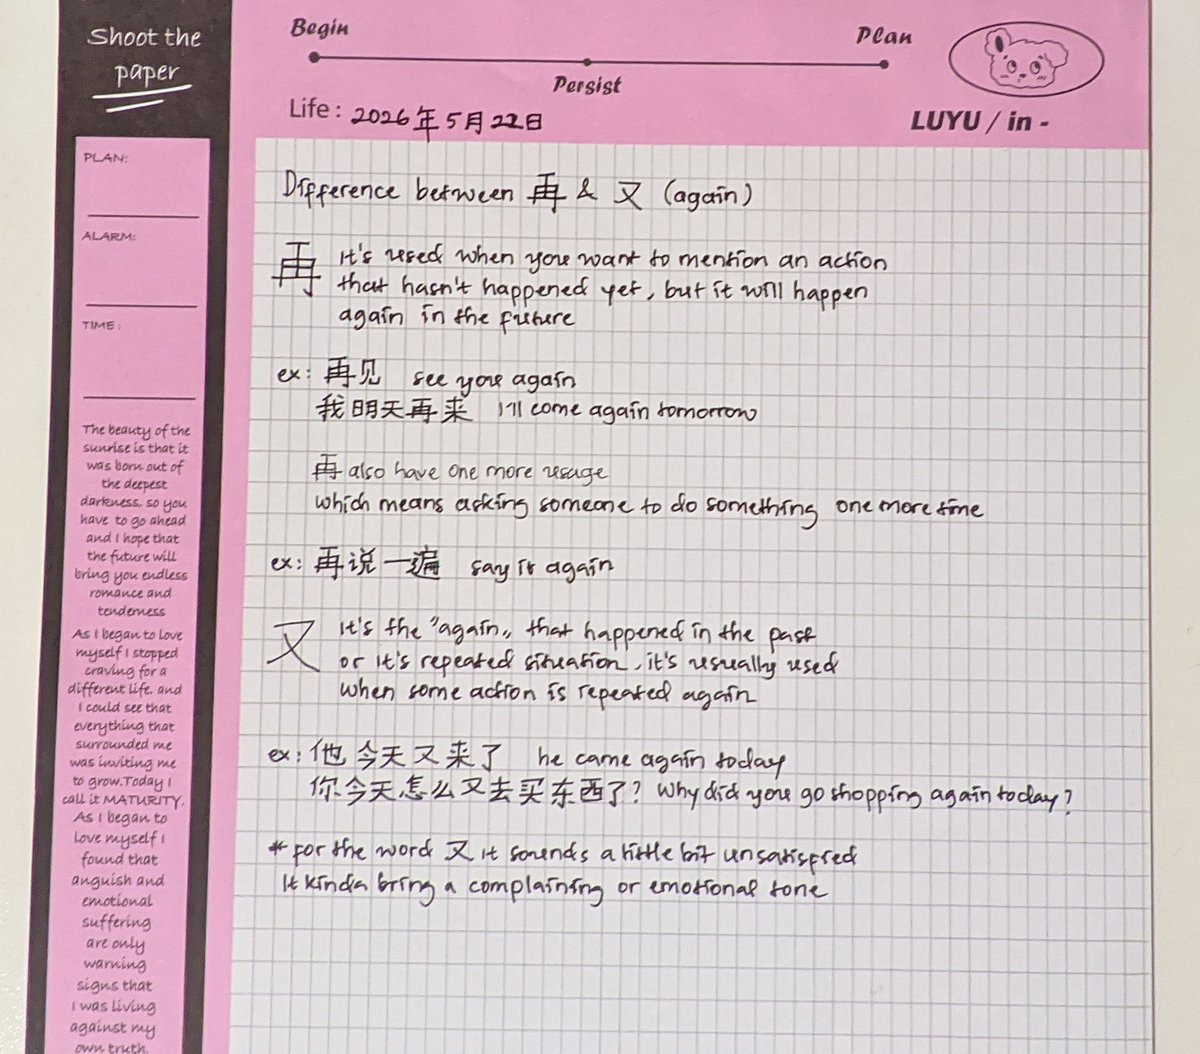 Shoot the
paper
Begin
Persist
Plan
Life: 2026年5月22日
LUYU / in -
PLAN:
ALARM:
TIME:
The beauty of the
sunrise is that it
was born out of
the deepest
darkness, so you
have to go ahead
and I hope that
the future will
bring you endless
romance and
tenderness
As I began to love
myself I stopped
craving for a
different life, and
I could see that
everything that
surrounded me
was inviting me
to grow.Today I
call it MATURITY.
As I began to
love myself I
found that
anguish and
emotional
suffering
are only
warning
signs that
I was living
against my
own truth.
Difference between 再 & 又 (again)
再 It's used when you want to mention an action
that hasn't happened yet, but it will happen
again in the future
ex: 再见 see you again
我明天再来 I'll come again tomorrow
再 also have one more usage
which means asking someone to do something one more time
ex: 再说一遍 say it again
又 It's the "again" that happened in the past
or it's repeated situation, it's usually used
when some action is repeated again
ex: 他今天又来了 he came again today
你今天怎么又去买东西了? Why did you go shopping again today?
* for the word 又 it sounds a little bit unsatisfied
It kinda bring a complaining or emotional tone